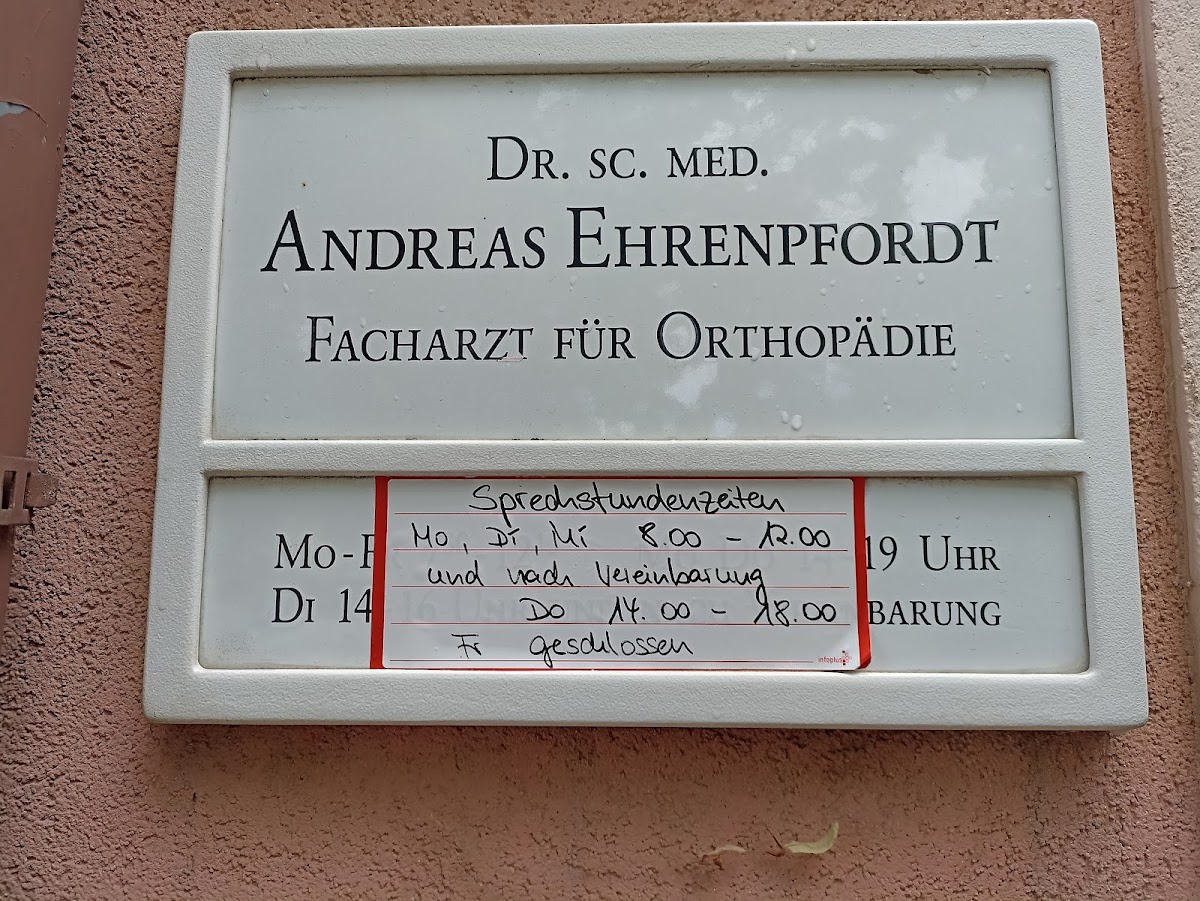 DR. SC. MED.
ANDREAS EHRENPFORDT
FACHARZT FÜR ORTHOPÄDIE
Sprechstundenzeiten
Mo, Di, Mi 8.00 - 12.00
und nach Vereinbarung
Do 14.00 - 18.00
Fr geschlossen
infoplus
MO- 19 UHR
DI 14